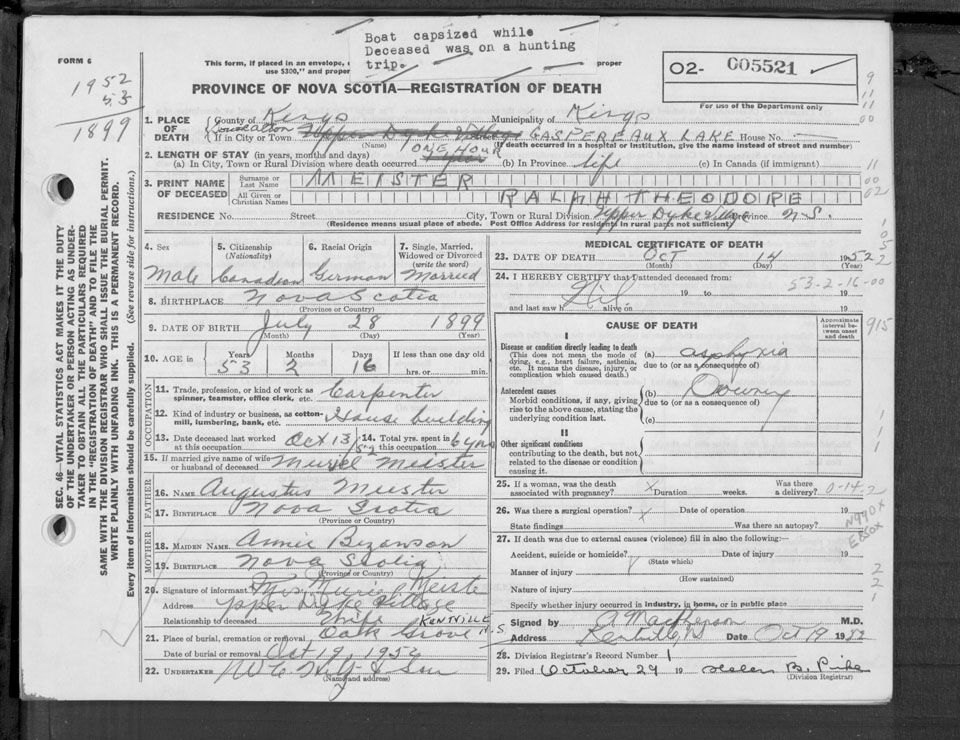 Boat capsized while
Deceased was on a hunting
trip.
FORM 6
1952
53
1899
This form, if placed in an envelope, proper
use $300," and proper
02- 005521
PROVINCE OF NOVA SCOTIA—REGISTRATION OF DEATH
For use of the Department only
1. PLACE OF DEATH
County of Kings Municipality of Kings
If in City or Town Upper Dyke Village GASPEREAUX LAKE House No.
(Name) (If death occurred in a hospital or institution, give the name instead of street and number)
2. LENGTH OF STAY (in years, months and days) ONE HOUR
(a) In City, Town or Rural Division where death occurred. (b) In Province life (c) In Canada (if immigrant)
3. PRINT NAME OF DECEASED
Surname or Last Name MEISTER
All Given or Christian Names RALPH THEODORE
RESIDENCE No. Street City, Town or Rural Division Upper Dyke Village Province N.S.
(Residence means usual place of abode. Post Office Address for residents in rural parts not sufficient)
4. Sex 5. Citizenship (Nationality) 6. Racial Origin 7. Single, Married, Widowed or Divorced (write the word)
Male Canadian German Married
8. BIRTHPLACE Nova Scotia
(Province or Country)
9. DATE OF BIRTH July 28 1899
(Month) (Day) (Year)
10. AGE in Years Months Days If less than one day old
53 2 16 hrs. or min.
OCCUPATION
11. Trade, profession, or kind of work as spinner, teamster, office clerk, etc. Carpenter
12. Kind of industry or business, as cotton-mill, lumbering, bank, etc. House building
13. Date deceased last worked at this occupation Oct 13/52 14. Total yrs. spent in this occupation 6 yrs
15. If married give name of wife or husband of deceased Muriel Meister
FATHER
16. NAME Augustus Meister
17. BIRTHPLACE Nova Scotia
(Province or Country)
MOTHER
18. MAIDEN NAME Annie Bezanson
19. BIRTHPLACE Nova Scotia
(Province or Country)
20. Signature of informant Mrs Muriel Meister
Address Upper Dyke Village
Relationship to deceased Wife KENTVILLE
21. Place of burial, cremation or removal Oak Grove N.S
Date of burial or removal Oct 19, 1952
22. UNDERTAKER
(Name and address)
MEDICAL CERTIFICATE OF DEATH
23. DATE OF DEATH Oct 14 1952
(Month) (Day) (Year)
24. I HEREBY CERTIFY that I attended deceased from:
Nil 19 to 19
53-2-16-00
and last saw h alive on 19
CAUSE OF DEATH
Approximate interval between onset and death
I
Disease or condition directly leading to death
(This does not mean the mode of dying, e.g., heart failure, asthenia, etc. It means the disease, injury, or complication which caused death.)
(a) asphyxia
due to (or as a consequence of)
Antecedent causes
Morbid conditions, if any, giving rise to the above cause, stating the underlying condition last.
(b)
due to (or as a consequence of)
(c)
II
Other significant conditions
contributing to the death, but not related to the disease or condition causing it.
915
25. If a woman, was the death associated with pregnancy? x Duration weeks. Was there a delivery? 0-14-2
26. Was there a surgical operation? x Date of operation 19
State findings Was there an autopsy?
N990X
E850X
27. If death was due to external causes (violence) fill in also the following:—
Accident, suicide or homicide? Date of injury 19
(State which)
Manner of injury
(How sustained)
Nature of injury
Specify whether injury occurred in industry, in home, or in public place
Signed by A Macpherson M.D.
Address Kentville, NS Date Oct 19 1952
28. Division Registrar's Record Number 1
29. Filed October 29 19 Helen B. Pike
(Division Registrar)
SEC. 46—VITAL STATISTICS ACT MAKES IT THE DUTY
OF THE UNDERTAKER OR PERSON ACTING AS UNDER-
TAKER TO OBTAIN ALL THE PARTICULARS REQUIRED
IN THE "REGISTRATION OF DEATH" AND TO FILE THE
SAME WITH THE DIVISION REGISTRAR WHO SHALL ISSUE THE BURIAL PERMIT.
WRITE PLAINLY WITH UNFADING INK. THIS IS A PERMANENT RECORD.
Every item of information should be carefully supplied. (See reverse side for instructions.)